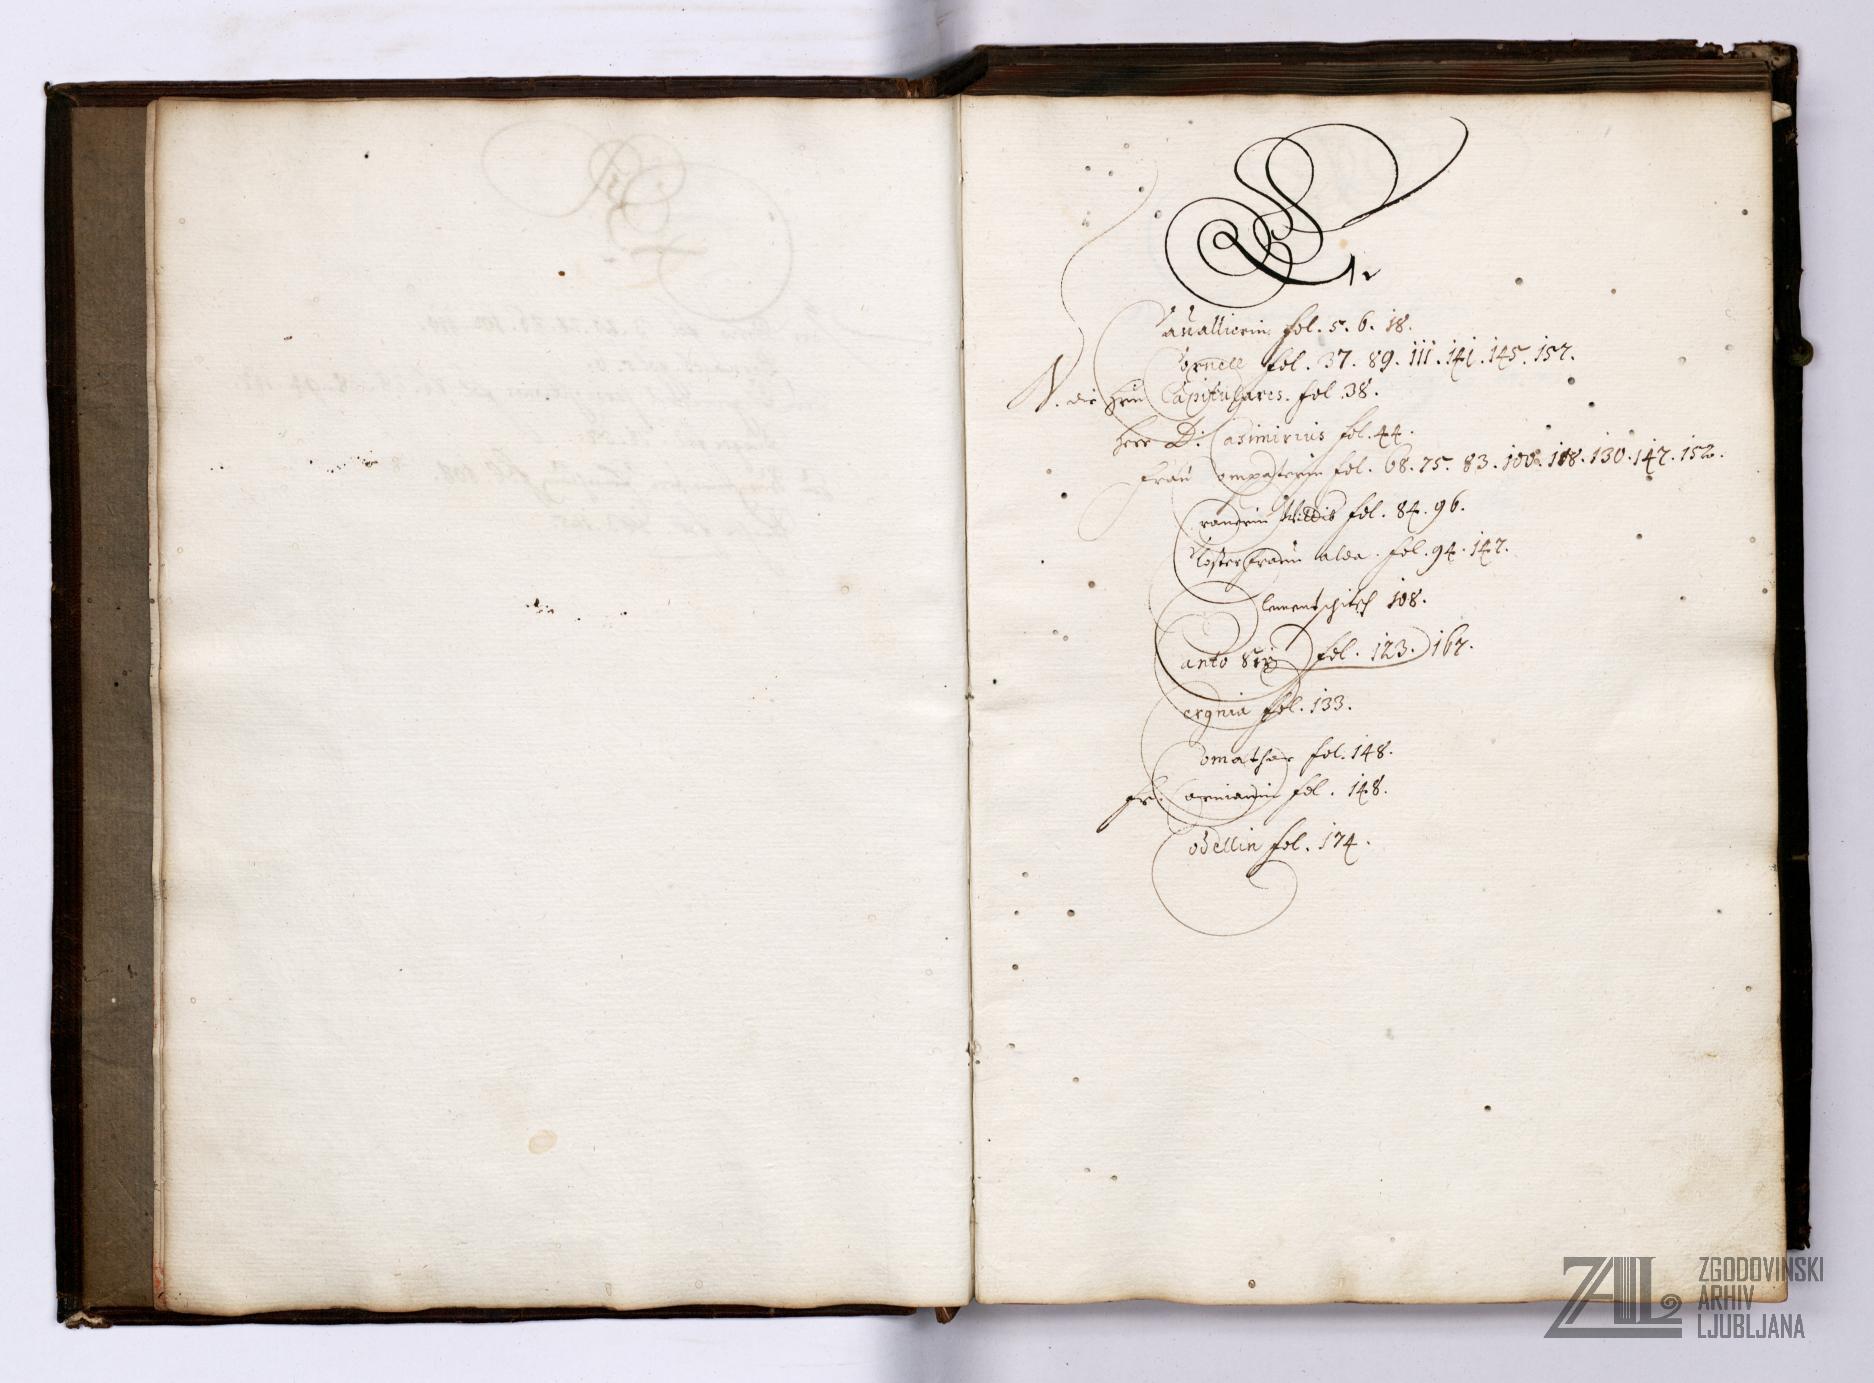 C
Cauallierin fol. 5. 6. 18.
Cornell fol. 37. 89. 111. 141. 145. 157.
N. die Hrn Capitulares. fol. 38.
Herr D: Casimirius fol. 44.
Frau Compasterin fol. 68. 75. 83. 100. 118. 130. 147. 152.
Cranerin fol. 84. 96.
Closterfraun alda. fol. 94. 147.
Clementschitsch 108.
Canto fol. 123. 167.
Cergnia fol. 133.
Comathar fol. 148.
fr: Cormanin fol. 148.
Cobellin fol. 174.
ZAL
ZGODOVINSKI
ARHIV
LJUBLJANA